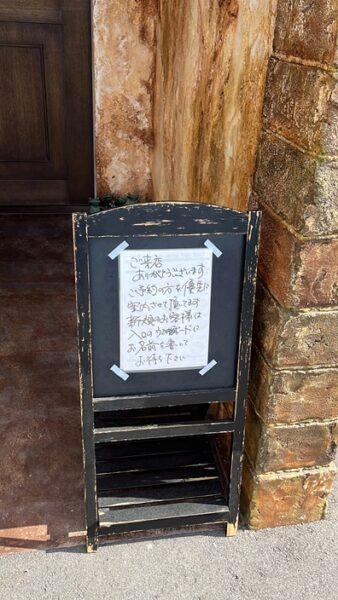 ご来店
ありがとうございます
ご予約の方を優先に
案内させて頂いてます
新規のお客様は
入口の ボードに
お名前を書いて
お待ち下さい